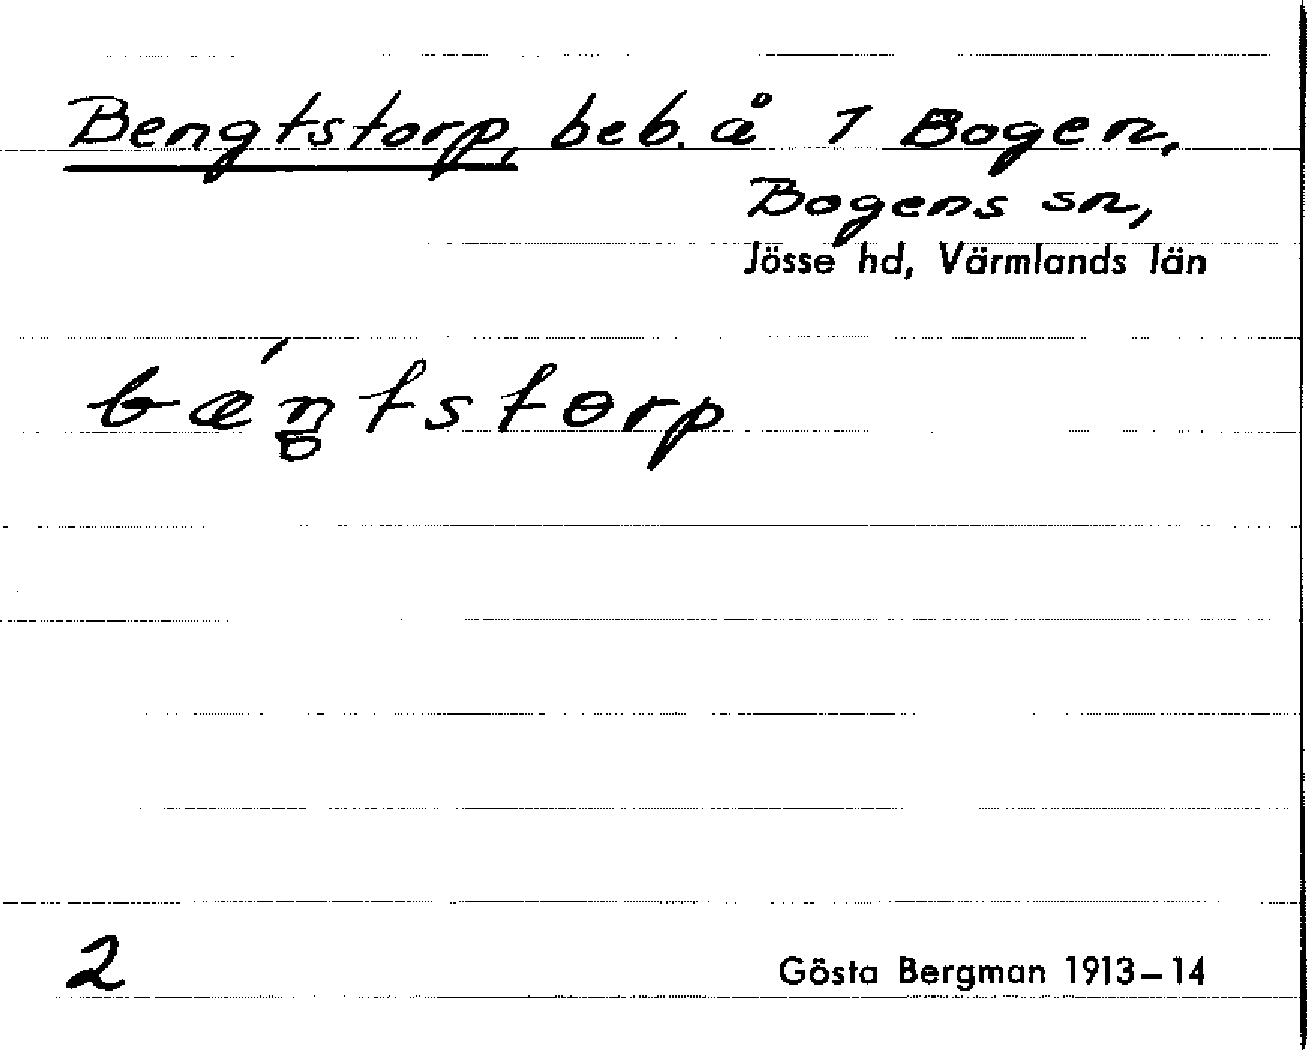 Bengtstorp, beb. å 1 Bogen,
Bogens sn,
Jösse hd, Värmlands län
bæ´n̥tstorp
2
Gösta Bergman 1913–14